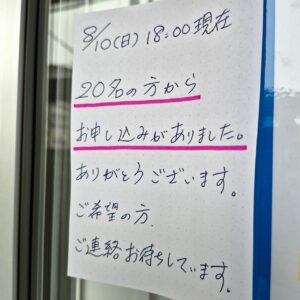 8/10(日) 18:00現在
20名の方から
お申し込みがありました。
ありがとうございます。
ご希望の方
ご連絡お待ちしています。